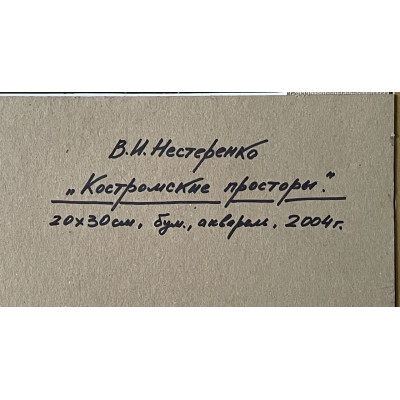 В.И.Нестеренко
„Костромские просторы."
20х30см, бум., акварель, 2004г.